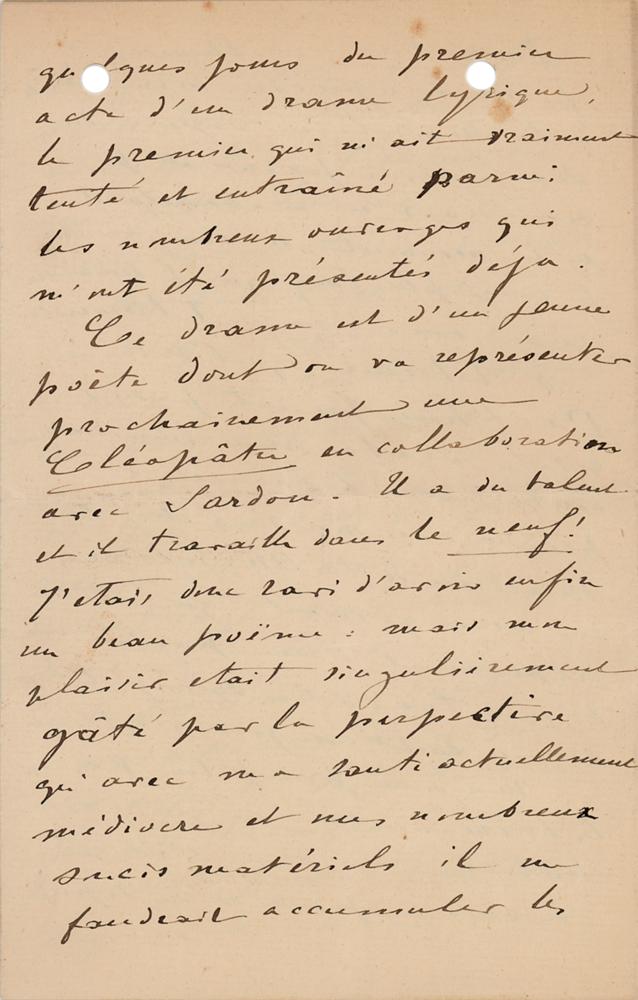 quelques jours du premier
acte d'un drame lyrique,
le premier qui m'ait vraiment
tenté et entraîné parmi
les nombreux ouvrages qui
m'ont été présentés déja.
Ce drame est d'un jeune
poëte dont on va représenter
prochainement une
Cléopâtre en collaboration
avec Sardou. Il a du talent
et il travaille dans le neuf!
J'etais donc ravi d'avoir enfin
un beau poëme : mais mon
plaisir etait singulièrement
gâté par la perspective
qu'avec ma santé actuellement
médiocre et mes nombreux
soucis matériels il me
faudrait accumuler les